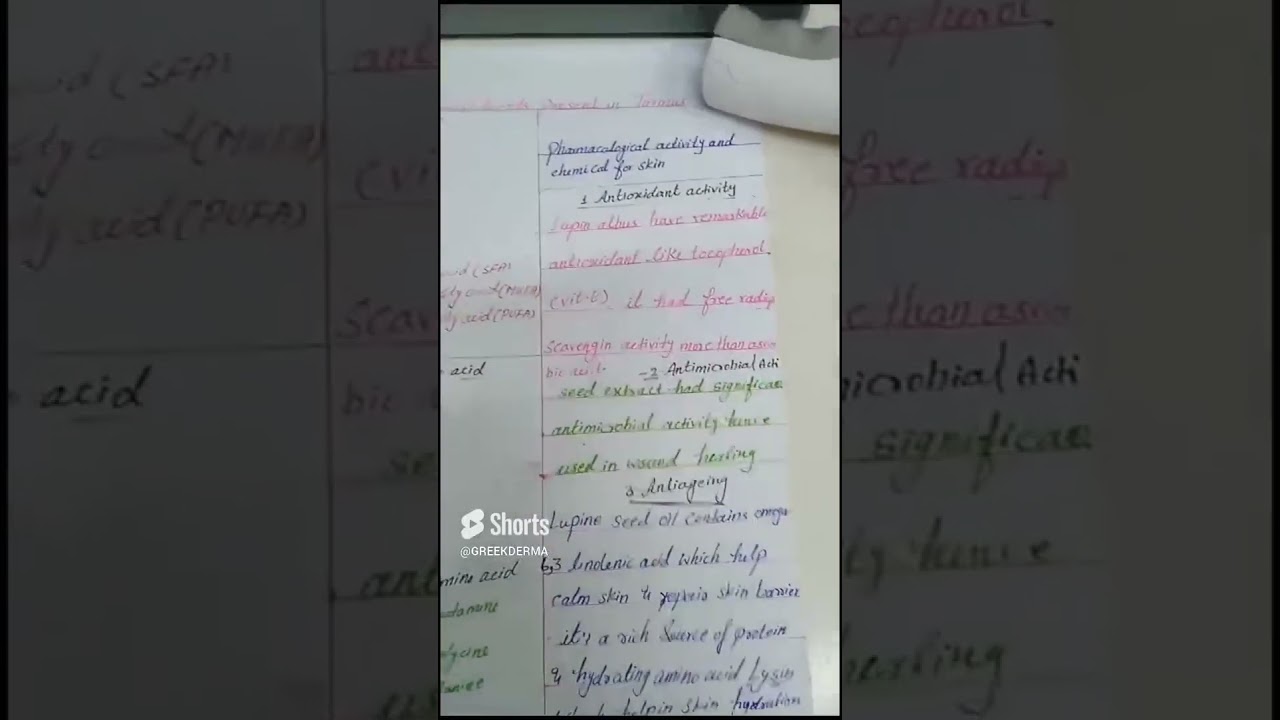 Present in Tarmus
Pharmacological activity and
chemical for skin
1 Antioxidant activity
Lupin albus have remarkable
antioxidant like tocopherol
(vit-E) it had free radip
scavengin activity more than asco
bic acid.
-2 Antimicrobial Acti
seed extract had significac
antimicrobial activity hence
used in wound healing
3 Antiageing
Lupine seed oil contains omega
6,3 lindenic acid which help
calm skin & skin barrier
it's a rich source of protein
& hydrating amino acid Lysin
helpin skin hydration
acid (SFA)
(MUFA)
acid (PUFA)
acid
mino acid
Shorts
@GREEKDERMA